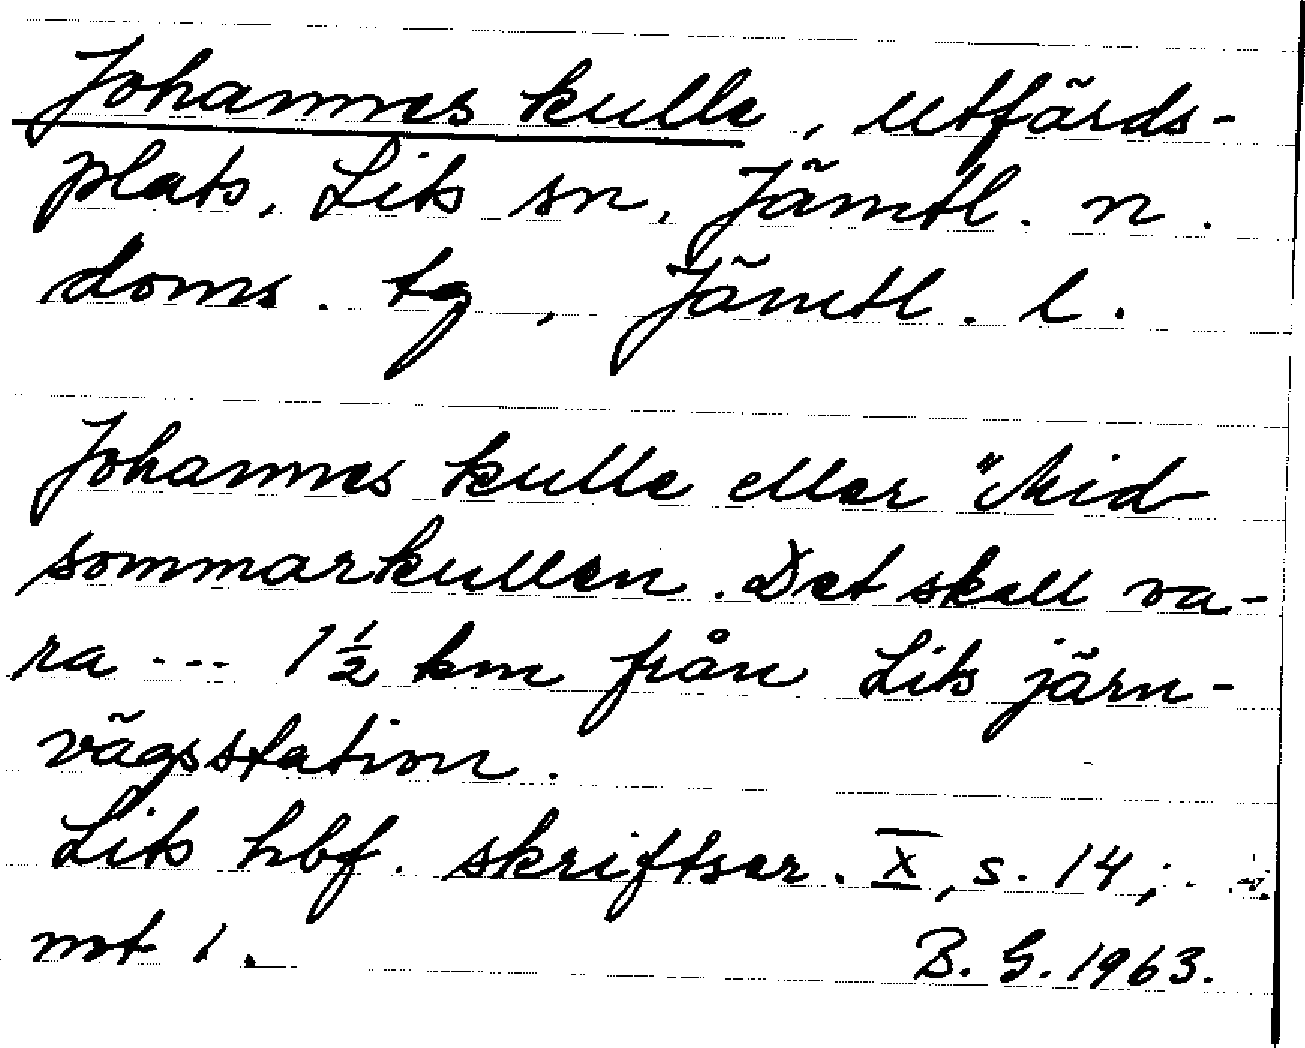 Johannes kulle, utfärds-
plats, Lits sn, Jämtl. n.
doms. tg, Jämtl. l.
Johannes kulle eller "Mid
sommarkullen. Det skall va-
ra --- 1½ km från Lits järn-
vägsstation.
Lits hbf. skriftser. X, s. 14;
not 1.
B. G. 1963.